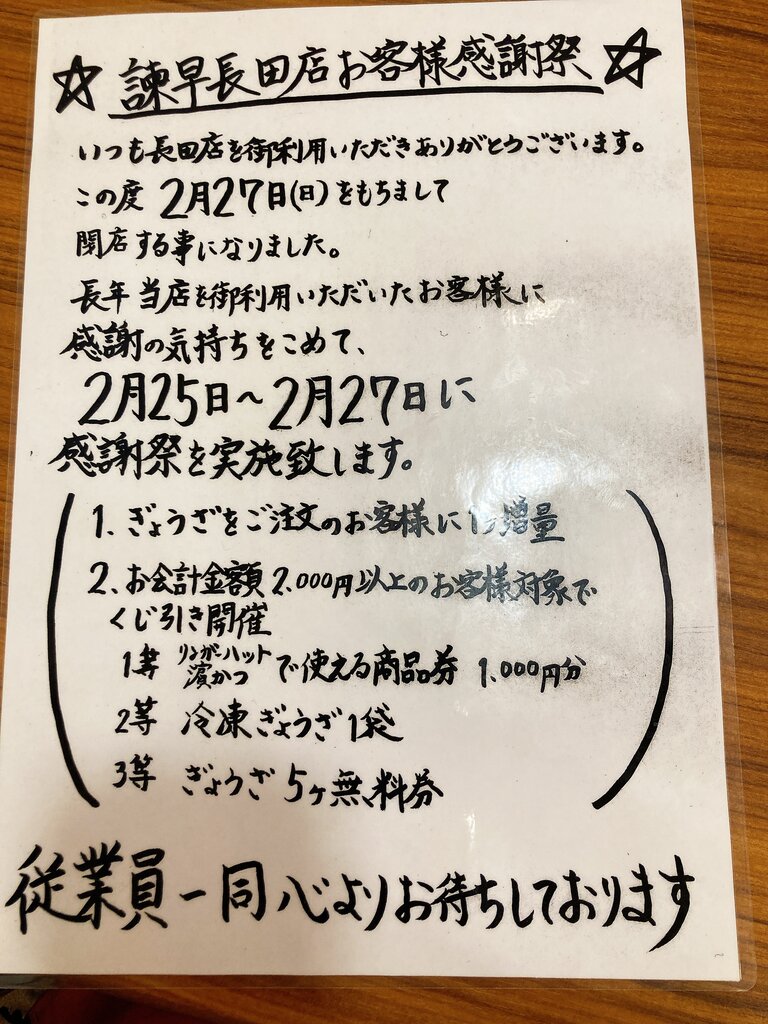 ☆ 諫早長田店お客様感謝祭 ☆
いつも長田店を御利用いただきありがとうございます。
この度 2月27日(日)をもちまして
閉店する事になりました。
長年当店を御利用いただいたお客様に
感謝の気持ちをこめて、
2月25日～2月27日に
感謝祭を実施致します。
1. ぎょうざをご注文のお客様に 増量
2. お会計金額 2.000円以上のお客様対象で
くじ引き開催
1等 リンガーハット 濵かつ で使える商品券 1.000円分
2等 冷凍ぎょうざ1袋
3等 ぎょうざ 5ヶ無料券
従業員一同心よりお待ちしております